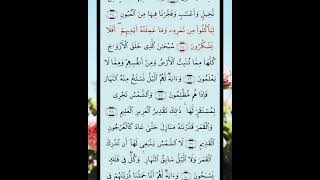 نَّخِيلٍ وَأَعْنَٰبٍ وَفَجَّرْنَا فِيهَا مِنَ ٱلْعُيُونِ ۝
لِيَأْكُلُوا۟ مِن ثَمَرِهِۦ وَمَا عَمِلَتْهُ أَيْدِيهِمْ ۖ أَفَلَا
يَشْكُرُونَ ۝ سُبْحَٰنَ ٱلَّذِى خَلَقَ ٱلْأَزْوَٰجَ
كُلَّهَا مِمَّا تُنۢبِتُ ٱلْأَرْضُ وَمِنْ أَنفُسِهِمْ وَمِمَّا لَا
يَعْلَمُونَ ۝ وَءَايَةٌ لَّهُمُ ٱلَّيْلُ نَسْلَخُ مِنْهُ ٱلنَّهَارَ
فَإِذَا هُم مُّظْلِمُونَ ۝ وَٱلشَّمْسُ تَجْرِى
لِمُسْتَقَرٍّ لَّهَا ۚ ذَٰلِكَ تَقْدِيرُ ٱلْعَزِيزِ ٱلْعَلِيمِ ۝
وَٱلْقَمَرَ قَدَّرْنَٰهُ مَنَازِلَ حَتَّىٰ عَادَ كَٱلْعُرْجُونِ
ٱلْقَدِيمِ ۝ لَا ٱلشَّمْسُ يَنۢبَغِى لَهَآ أَن تُدْرِكَ
ٱلْقَمَرَ وَلَا ٱلَّيْلُ سَابِقُ ٱلنَّهَارِ ۚ وَكُلٌّ فِى فَلَكٍ
يَسْبَحُونَ ۝ وَءَايَةٌ لَّهُمْ أَنَّا حَمَلْنَا ذُرِّيَّتَهُمْ فِى